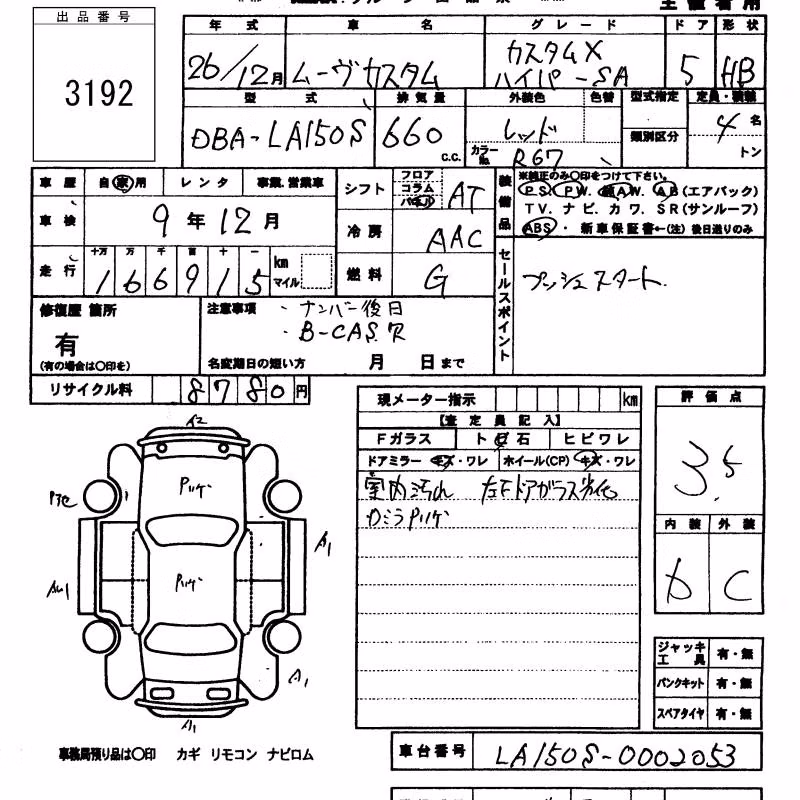 出品番号
3192
年式 車名 グレード ドア 形状
26/12月 ムーヴカスタム カスタムX ハイパーSA 5 HB
型式 排気量 外装色 色替 型式指定 定員・積載
DBA-LA150S 660 c.c. レッド 類別区分 4名
カラーNo. R67 トン
車歴 自家用 レンタ 事業.営業車
車検 9年12月
走行 十万 万 千 百 十 一
166915 km マイル
シフト フロア コラム パネル AT
冷房 AAC
燃料 G
装備品
※純正のみ〇印をつけて下さい。
PS PW. AW. AB(エアバック)
TV. ナビ. カワ. SR(サンルーフ)
ABS・ 新車保証書←(注) 後日送りのみ
セールスポイント
プッシュスタート
修復歴 箇所
有
(有の場合は〇印を)
注意事項 ・ナンバー後日
・B-CAS.R
名変期日の短い方 月 日まで
リサイクル料 8780円
現メーター指示 km
【査定員記入】
Fガラス ト飛石 ヒビワレ
ドアミラー キズ・ワレ ホイール(CP) キズ・ワレ
室内汚れ 左Fドアガラス劣化
評価点
3.5
内装 外装
D C
A2
A1
A1
A1
ジャッキ 工具 有・無
パンクキット 有・無
スペアタイヤ 有・無
事務局預り品は〇印 カギ リモコン ナビロム
車台番号 LA150S-0002053